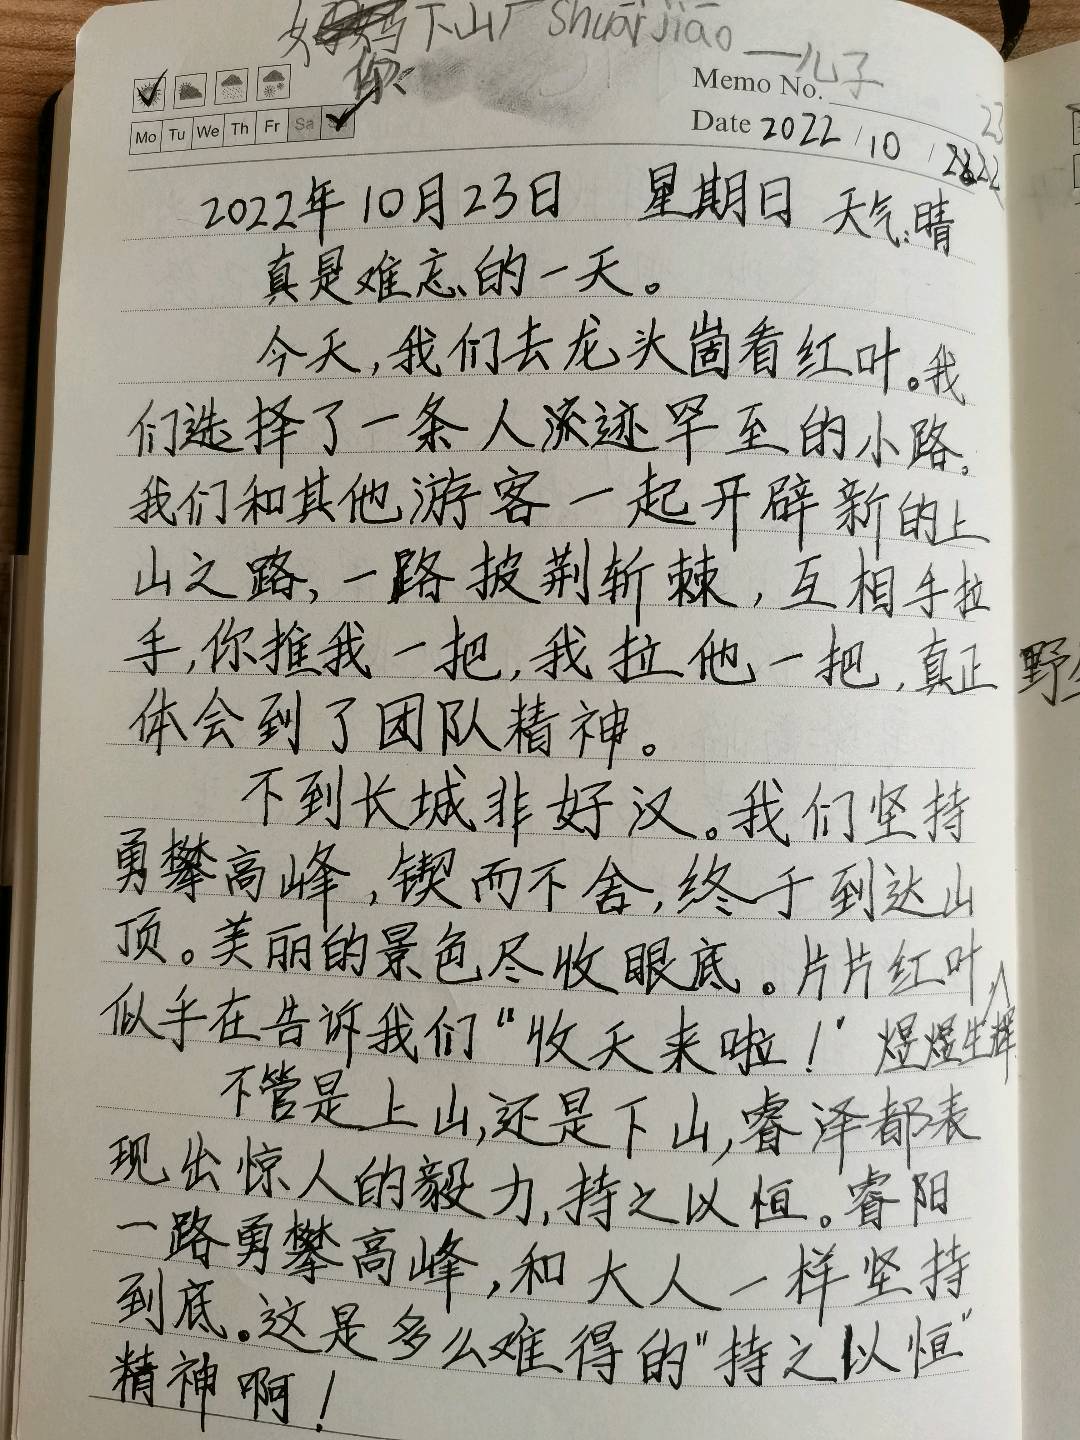 妈妈下山厂Shuāijiāo——儿子
你
Memo No.
Mo Tu We Th Fr Sa
Date 2022/10/
23
2022年10月23日 星期日 天气:晴
真是难忘的一天。
今天,我们去龙头崮看红叶。我
们选择了一条人流迹罕至的小路。
我们和其他游客一起开辟新的上
山之路,一路披荆斩棘,互相手拉
手,你推我一把,我拉他一把,真正
野
体会到了团队精神。
不到长城非好汉。我们坚持
勇攀高峰,锲而不舍,终于到达山
顶。美丽的景色尽收眼底。片片红叶
似乎在告诉我们“收天来啦!”煜煜生辉
不管是上山,还是下山,睿泽都表
现出惊人的毅力,持之以恒。睿阳
一路勇攀高峰,和大人一样坚持
到底。这是多么难得的“持之以恒”
精神啊!